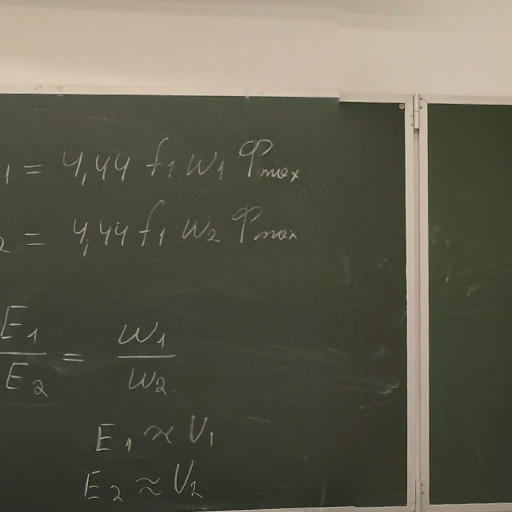 1 = 4,44 f1 w1 Φmax
2 = 4,44 f1 w2 Φmax
E1/E2 = w1/w2
E1 ≈ U1
E2 ≈ U2